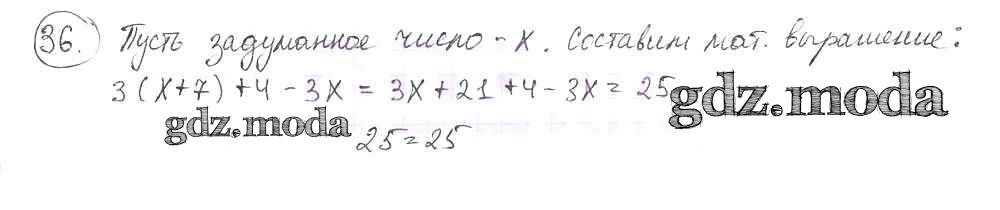 36. Пусть задуманное число - x. Составим мат. выражение:
3(x+7)+4-3x = 3x+21+4-3x = 25
gdz.moda
gdz.moda
25=25